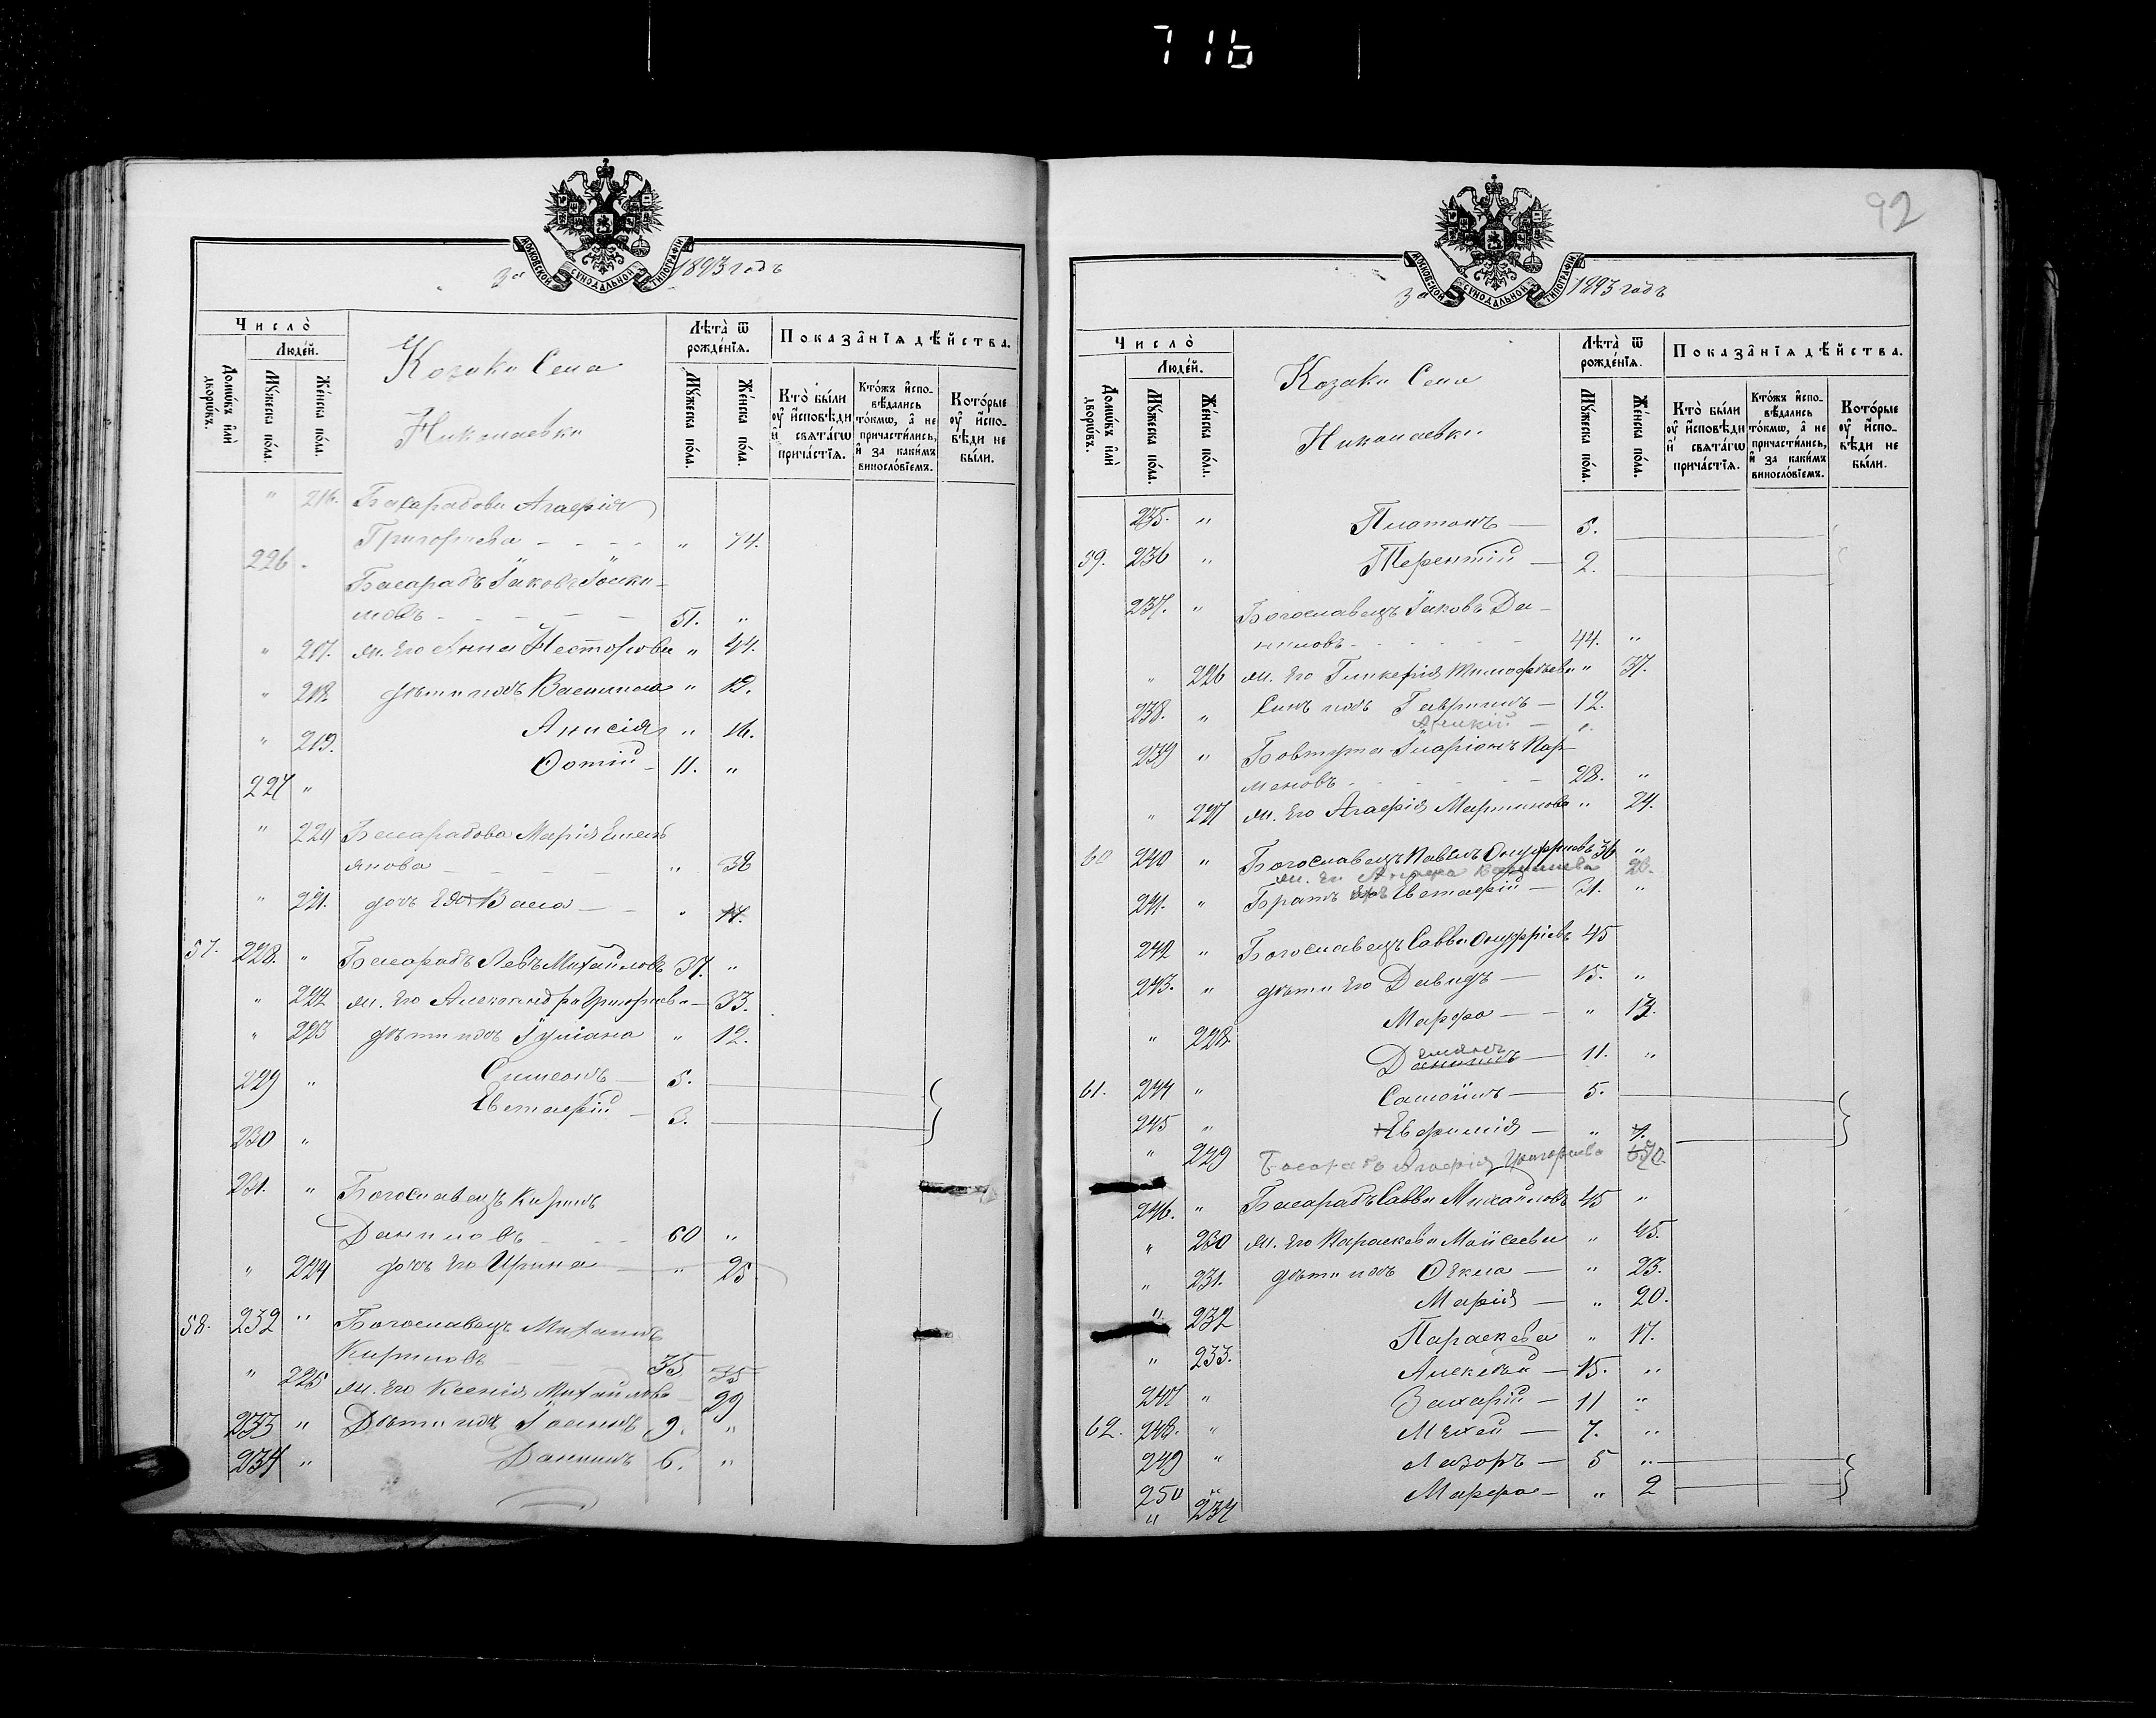 716
За 1893 годъ
МОСКОВСКОЙ СѴНОДАЛЬНОЙ ТИПОГРАФІИ
Число̀
Людéй.
Домѡ́въ и҆лѝ дворѡ́въ.
Мꙋ́жеска по́ла.
Же́нска по́ла.
Козаки Села
Николаевки
Лѣта̀ ѿ рожде́нїѧ.
Мꙋ́жеска по́ла.
Же́нска по́ла.
Показа̑нїѧ дѣ́йства.
Кто̀ бы́ли ᲂу҆ и҆сповѣди и҆ свѧта́гѡ прича́стїѧ.
Кто́жъ и҆спо-
вѣдались
то́кмѡ, а҆ не
причасти́лись,
и҆ за каки́мъ
винослóвїемъ.
Кото́рые ᲂу҆ и҆спо-
вѣди не
бы́ли.
" 216. Басарабова Агафія
Григорьева - - - - " 74.
226 . Басарабъ Іаковъ Іоаки-
мовъ - - - - - 51. "
" 217. ж. его Анна Несторова " 44.
" 218. дѣти ихъ Василиса " 19.
" 219. Анисія " 16.
227 " Фотій - 11. "
" 220 Басарабова Марія Емель
янова - - - - - " 38
" 221. дочь Васса - - " 14.
57. 228. " Басарабъ Левъ Михайловъ 37. "
" 222 ж. его Александра Григорьева - 33.
" 223 дѣти ихъ Іуліана " 12.
229 " Симеонъ - 5.
230 " Евстафій - 3.
231. " Богославецъ Кирилъ
Даниловъ - - - 60 "
" 224 дочь его Ирина - " 25
58. 232 " Богославецъ Михаилъ
Кириловъ 35 35
" 225 ж. его Ксенія Михайлова - 29
233 " Дѣти ихъ Іоаннъ 9. "
234 " Даниилъ 6. "
92
За 1893 годъ
МОСКОВСКОЙ СѴНОДАЛЬНОЙ ТИПОГРАФІИ
Число̀
Людéй.
Домѡ́въ и҆лѝ дворѡ́въ.
Мꙋ́жеска по́ла.
Же́нска по́л.
Козаки Села
Николаевки
Лѣта̀ ѿ рожде́нїѧ.
Мꙋ́жеска по́ла.
Же́нска по́ла.
Показа̑нїѧ дѣ́йства.
Кто̀ бы́ли ᲂу҆ и҆сповѣди и҆ свѧта́гѡ прича́стїѧ.
Кто́жъ и҆спо-
вѣдались
то́кмѡ, а҆ не
причасти́лись,
и҆ за каки́мъ
винослóвїемъ.
Кото́рые ᲂу҆ и҆спо-
вѣди не
бы́ли.
235. " Платонъ - 5.
59. 236 " Терентій - 2.
237. " Богославецъ Іаковъ Да-
ниловъ - - - - - 44. "
" 226 ж. его Гликерія Тимофѣева " 37.
238. " Сынъ ихъ Гавриилъ - 12.
239 " Бовтута Иларіонъ Пар-
меновъ - - - - - 28. "
" 227 ж. его Агафія Мартинова " 24.
60 240 " Богославецъ Павелъ Онуфріевъ 36 "
241. " Братъ его Евстафій - 21. "
242 " Богославецъ Савва Онуфріевъ 45
243. " дѣти его Давидъ - 15. "
" 228. Марфа - - " 13.
Даниилъ - 11. "
61. 244 " Самоилъ - 5.
245 " Евфимія - " 1.
" 229 Басарабъ Агафія Григорьева 70.
246. " Басарабъ Савва Михайловъ 45 "
" 230 ж. его Параскева Моисеева " 45.
" 231. дѣти ихъ Фекла - " 23.
" 232 Марія - " 20.
" 233. Параскева " 17.
247 " Алексѣй - 15. "
62. 248. " Захарій - 11 "
249 " Михей - 7. "
250 " Лазорь - 5 "
" 234 Марфа - " 2